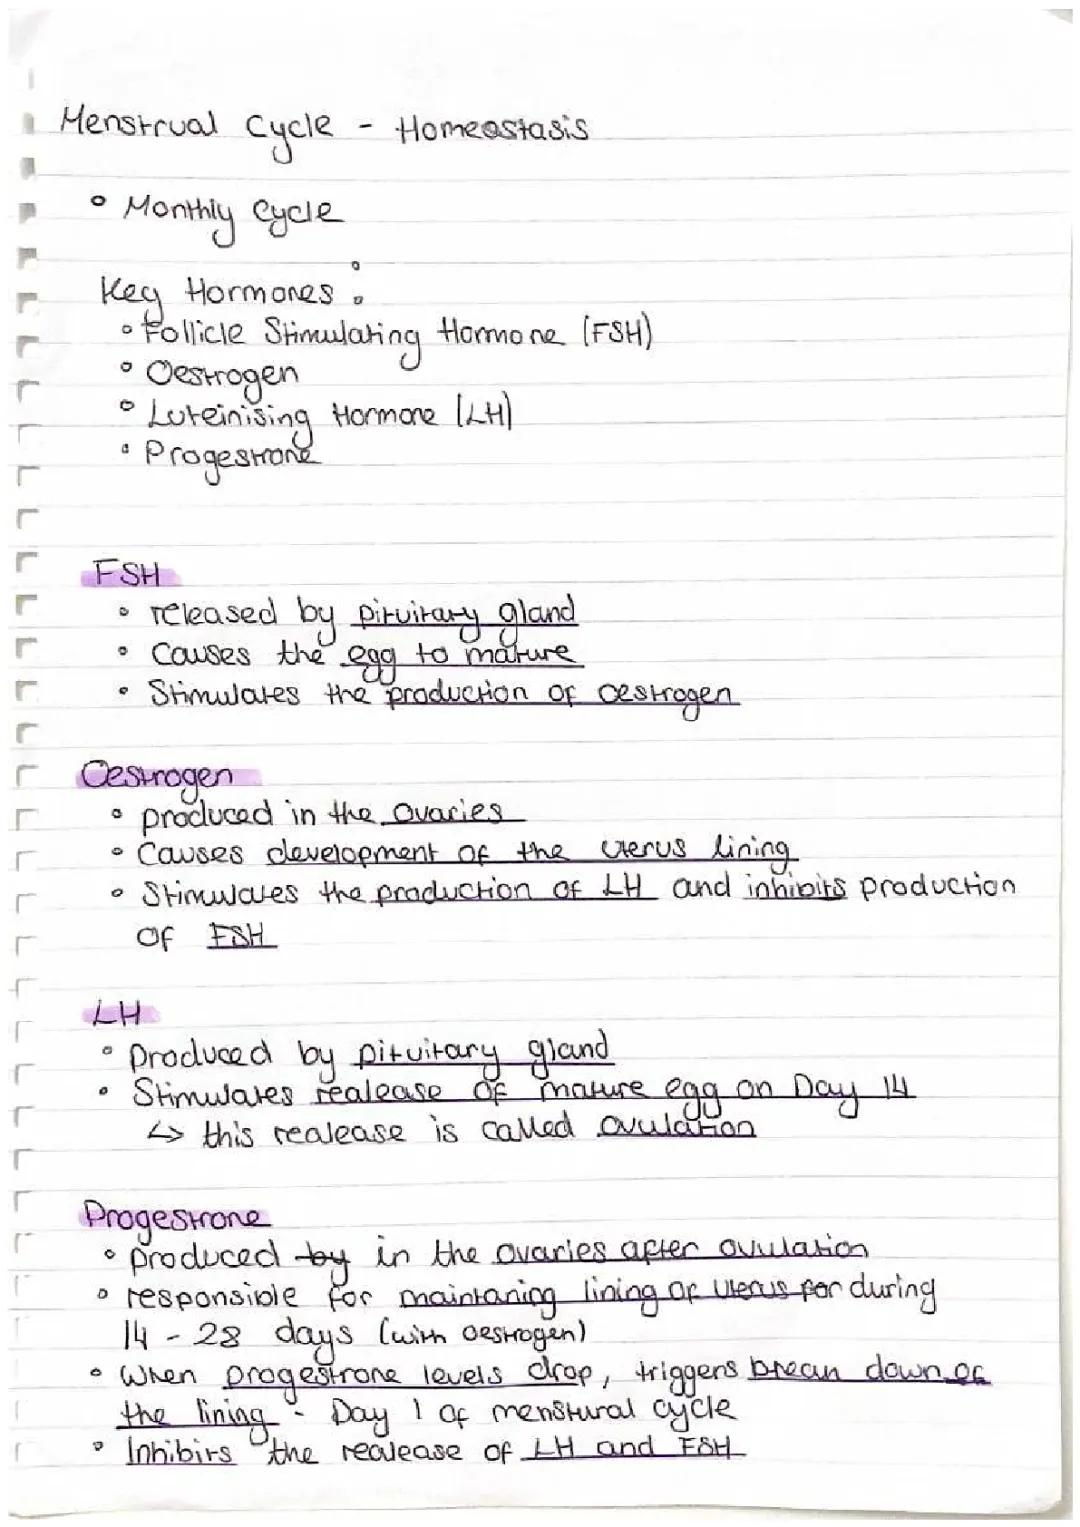 Menstrual Cycle - Homeostasis
• Monthly Cycle
Key Hormones:
• Follicle Stimulating Hormone (FSH)
• Oestrogen
• Luteinising Hormone (LH)
• Progestrone
FSH
• released by pituitary gland
• Causes the egg to mature
• Stimulates the production of oestrogen
Oestrogen
• produced in the ovaries
• Causes development of the uterus lining
• Stimulates the production of LH and inhibits production
of FSH
LH
• produced by pituitary gland
• Stimulates realease of mature egg on Day 14
↳ this realease is called ovulation
Progestrone
• produced by in the ovaries after ovulation
• responsible for maintaning lining of uterus for during
14 - 28 days (with oestrogen)
• When progestrone levels drop, triggers break down of
the lining - Day 1 of menstural cycle
• Inhibits the realease of LH and FSH